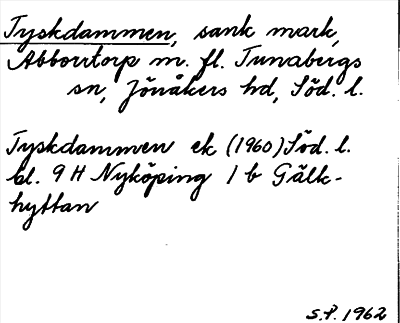 Tyskdammen, sank mark,
Abborrtorp m. fl. Tunabergs
sn, Jönåkers hd, Söd. l.
Tyskdammen ek (1960) Söd. l.
bl. 9 H Nyköping 1 b Gälk-
hyttan
S.P. 1962